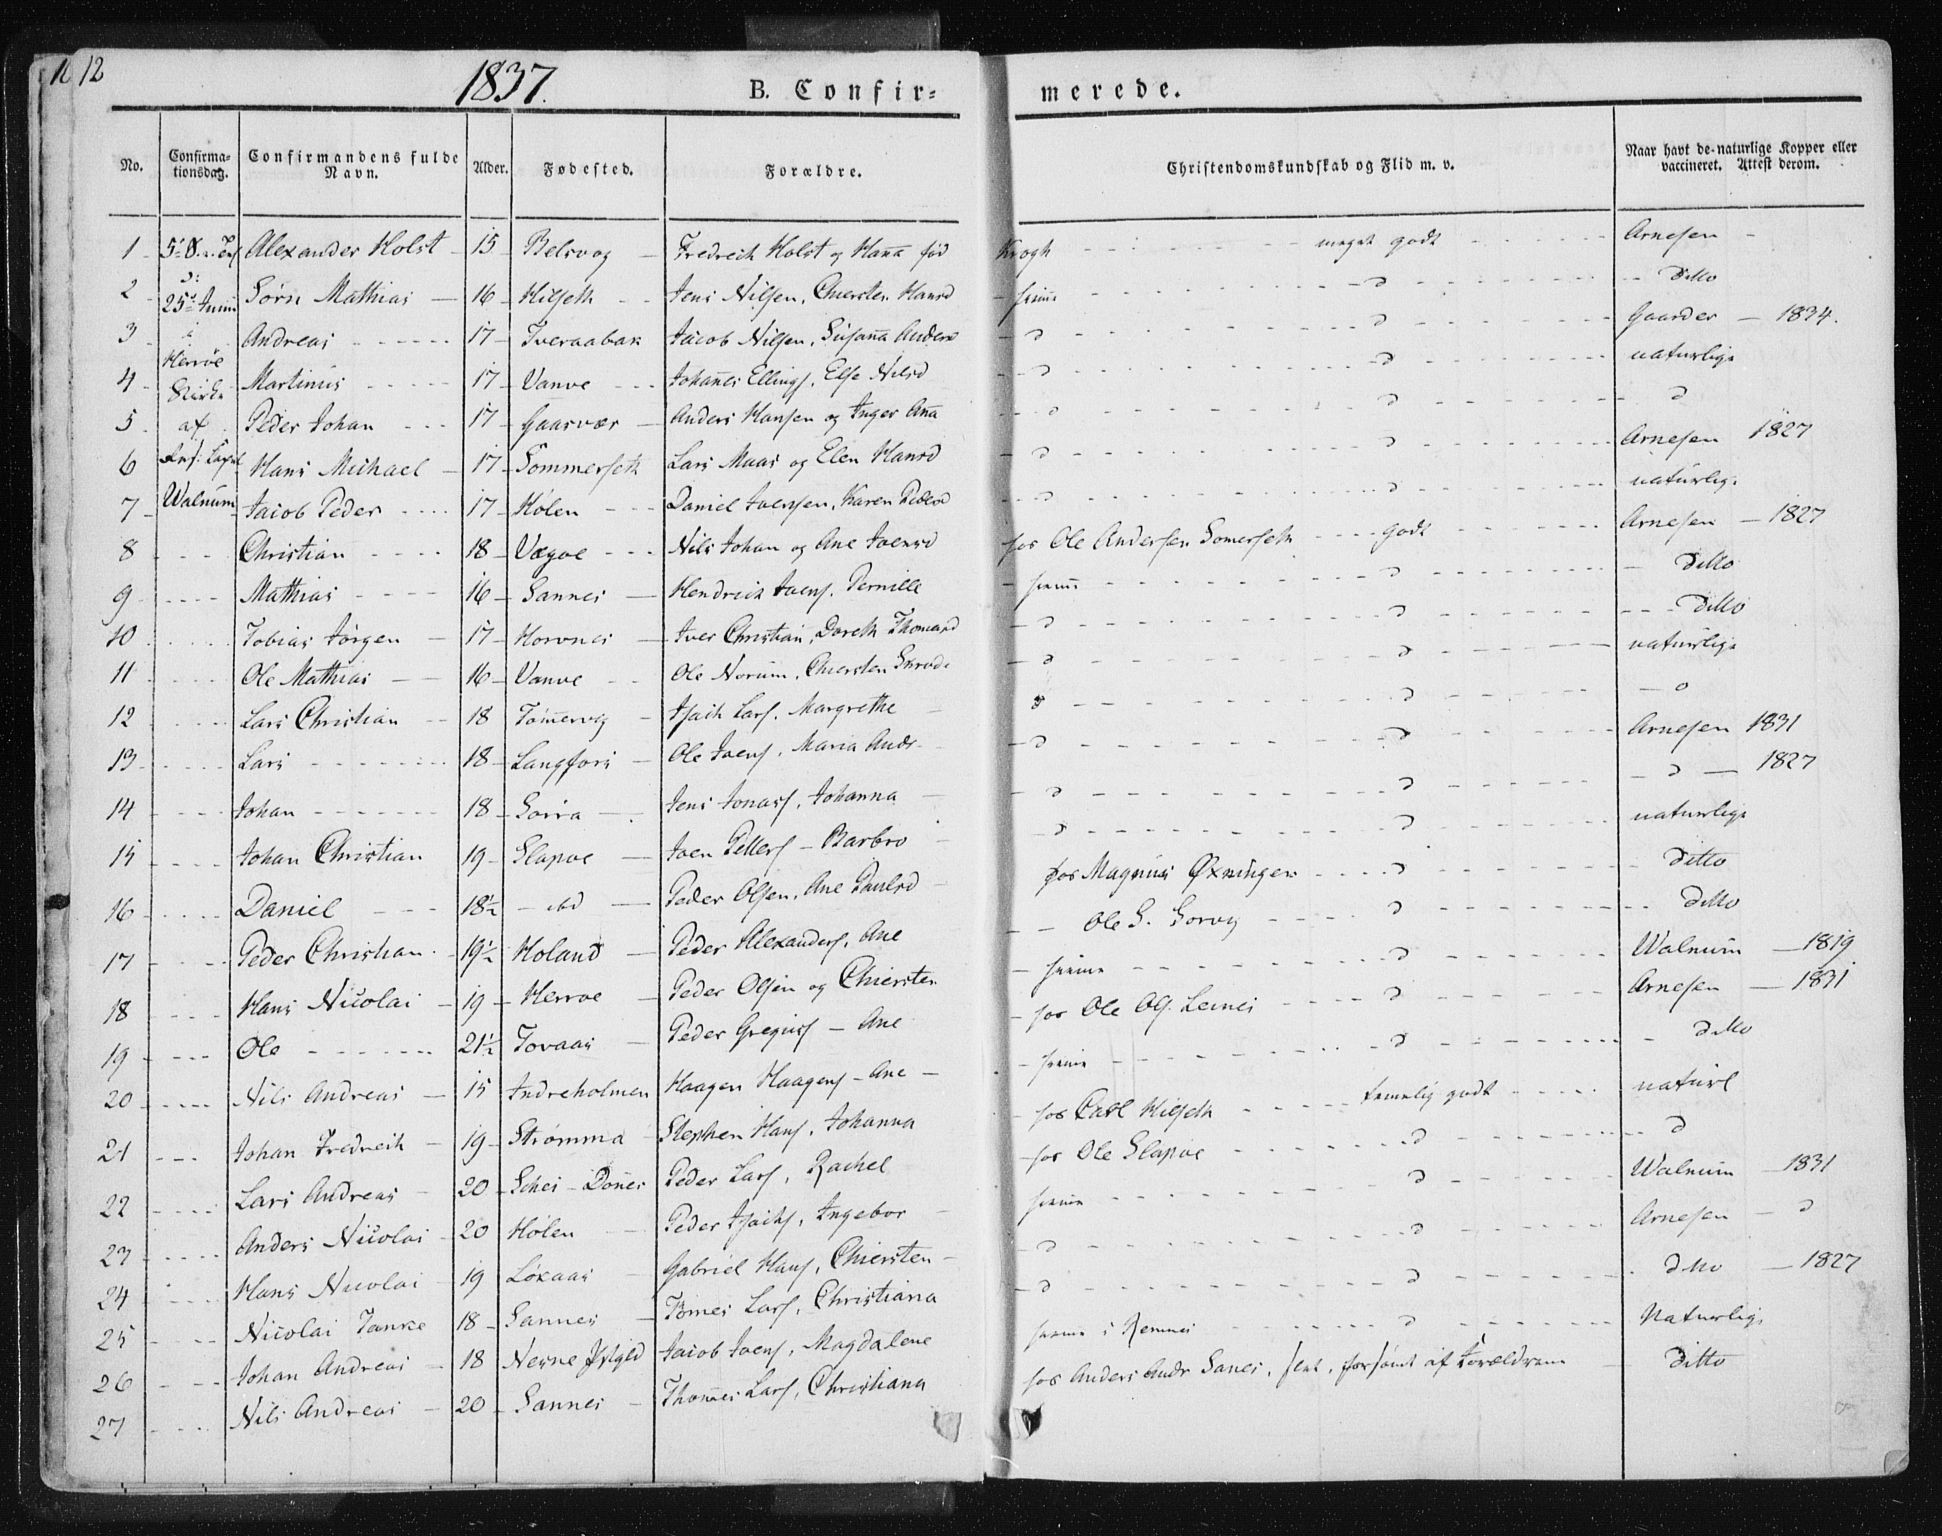 12
1837.
B. Confir=
merede.
No. Confirma-tionsdag. Confirmandens fulde Navn. Alder. Fødested. Forældre. Christendomskundskab og Flid m. v. Naar havt de naturlige Kopper eller vaccineret. Attest derom.
1 5te S. Alexander Holst 15 Belsvog Fredrich Holst og Hana fød Krogh meget godt Arnesen
2 25de Juni Sørn Mathias 16 Hilseth Jens Nilsen, Chiersten Hansd hiemme d ditto
3 Andreas 17 Tveraabak Jacob Nilsen, Susana Andersd d d Gaarder 1834.
4 Herrøe Kirke Martinus 17 Vanve Johanes Ellings, Else Nilsd d d naturlige
5 af Peder Johan 17 Gaasvær Anders Hansen og Inger Ana d d d
6 Hans Michael 17 Sommerseth Lars Maas og Elen Hansd d d Arnesen 1827
7 Walnum Jacob Peder 17 Holen Daniel Joensen, Karen Pedersd d d naturlige
8 Christian 18 Vægve Nils Johan og Ane Joensd hos Ole Andersen Somerseth godt Arnesen 1827
9 Mathias 16 Sannes Hendrich Joens. Pernille hiemme d ditto
10 Tobias Jørgen 17 Hovnes Iver Christian, Doreth Thomasd d d ditto
11 Ole Mathias 16 Vanve Ole Norum, Chiersten d d naturlige
12 Lars Christian 18 Tømervig Isach Lars. Margrethe d d d
13 Lars 18 Langfors Ole Joens, Maria Andr. d d Arnesen 1831
14 Johan 18 Sørra Jens Jonass, Johanna d d d 1827
15 Johan Christian 19 Slapøe Joen Petters Barbro d d naturlige
16 Daniel 18½ ibd Peder Olsen, Ane Paulsd hos Magnus Øxningen d ditto
17 Peder Christian 19½ Holand Peder Alexanders, Ane Ole S. Sørvig d ditto
18 Hans Nicolai 19 Herrøe Peder Olsen og Chiersten hiemme d Walnum 1819
19 Ole 21½ Tovaas Peder Gregers Ane hos Ole Ols. Leines d Arnesen 1831
20 Nils Andreas 15 Indreholmen Haagen Haagens Ane hiemme d ditto
21 Johan Fredrich 19 Strømma Stephen Hans, Johanna hos Carl Hilseth temelig godt naturl
22 Lars Andreas 20 Schei Dønes Peder Lars, Rachel hos Ole Slapøe d d
23 Anders Nicolai 20 Holen Peder Isachs, Ingebor hiemme d Walnum 1831
24 Hans Nicolai 19 Løkaas Gabriel Hans, Chiersten d d Arnesen d
25 Nicolai Tanke 18 Sannes Tomes Lars, Christiana d d ditto 1827
26 Johan Andreas 18 Nerne Jacob Joens, Magdalene hiemme i Hemnes d Naturlige
27 Nils Andreas 20 Sannes Thomes Lars, Christiana hos Anders Andr. Sanes, sent, forsømt af Forældrene ditto